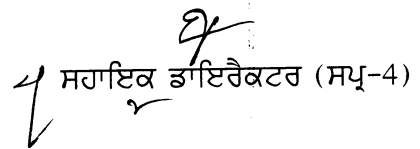 ਸਹਾਇਕ ਡਾਇਰੈਕਟਰ (ਸਪ੍ਰ-4)